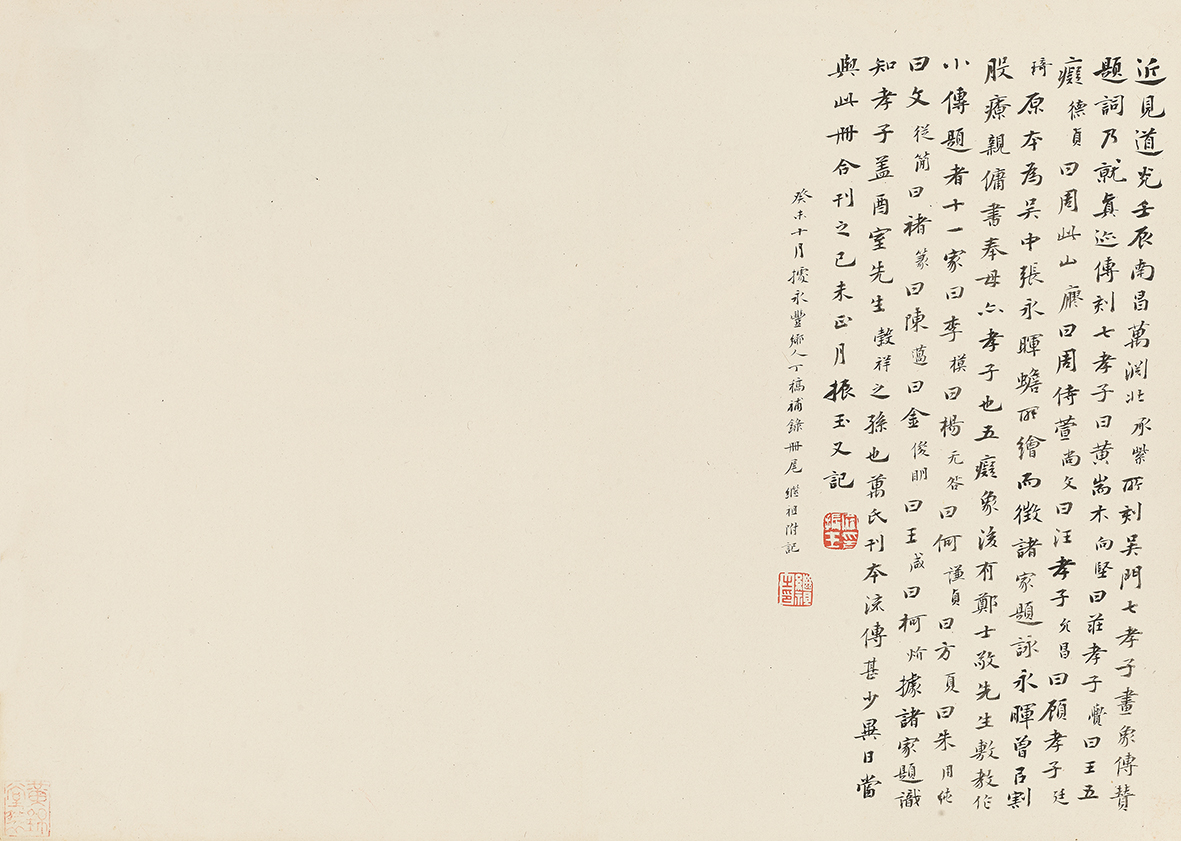 近見道光壬辰南昌萬淵北承紫所刻吳門七孝子畫象傳贊
題詞乃就真迹傳刻七孝子曰黃耑木向堅曰莊孝子覺曰王五
癡德貞曰周此山廌曰周侍萱尚文曰汪孝子允昌曰顧孝子廷
琦原本為吳中張永暉蟾所繪而徵諸家題詠永暉曾以割
股療親傭書奉母亦孝子也五癡象後有鄭士敬先生敷教作
小傳題者十一家曰李模曰楊无咎曰何謙貞曰方夏曰朱用純
曰文從簡曰褚篆曰陳邁曰金俊明曰王咸曰柯炌據諸家題識
知孝子蓋酉室先生穀祥之孫也萬氏刊本流傳甚少異日當
與此冊合刊之己未正月振玉又記
癸未十月據永豐鄉人丁橋補錄冊尾繼祖附記